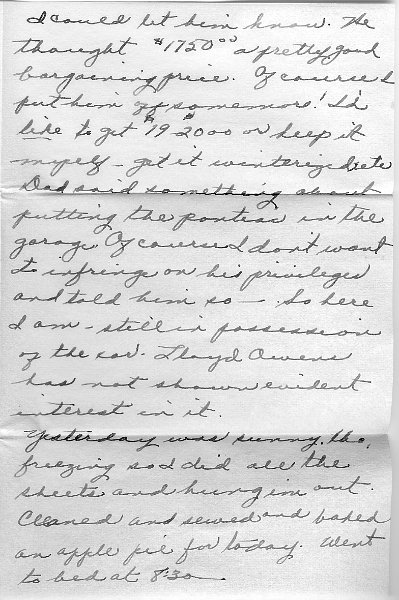 I could let him know. He
thought $1750.00 a pretty good
bargaining price. Of course I
put him off somemore! I'd
like to get $19-$2000 or keep it
myself - get it winterized, etc
Dad said something about
putting the pontiac in the
garage. Of course I don't want
to infringe on his privileges
and told him so — So here
I am - still in possession
of the car. Lloyd Owens
has not shown evident
interest in it.
Yesterday was sunny, tho,
freezing so I did all the
sheets and hung 'em out.
Cleaned and sewed and baked
an apple pie for today. Went
to bed at 8:30 —